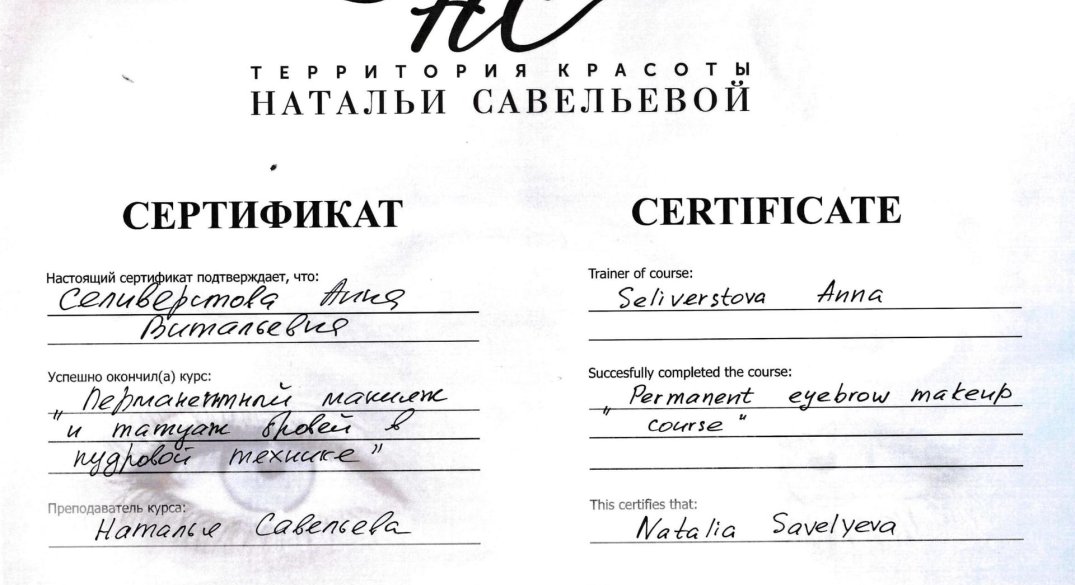 НС
ТЕРРИТОРИЯ КРАСОТЫ
НАТАЛЬИ САВЕЛЬЕВОЙ
СЕРТИФИКАТ
Настоящий сертификат подтверждает, что:
Селиверстова Анна
Витальевна
Успешно окончил(а) курс:
„ Перманентный макияж
и татуаж бровей в
пудровой технике "
Преподаватель курса:
Наталья Савельева
CERTIFICATE
Trainer of course:
Seliverstova Anna
Succesfully completed the course:
„ Permanent eyebrow makeup
course "
This certifies that:
Natalia Savelyeva